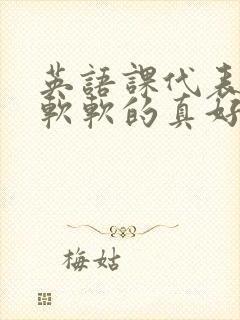 英語課代表
軟軟的真好
梅姑